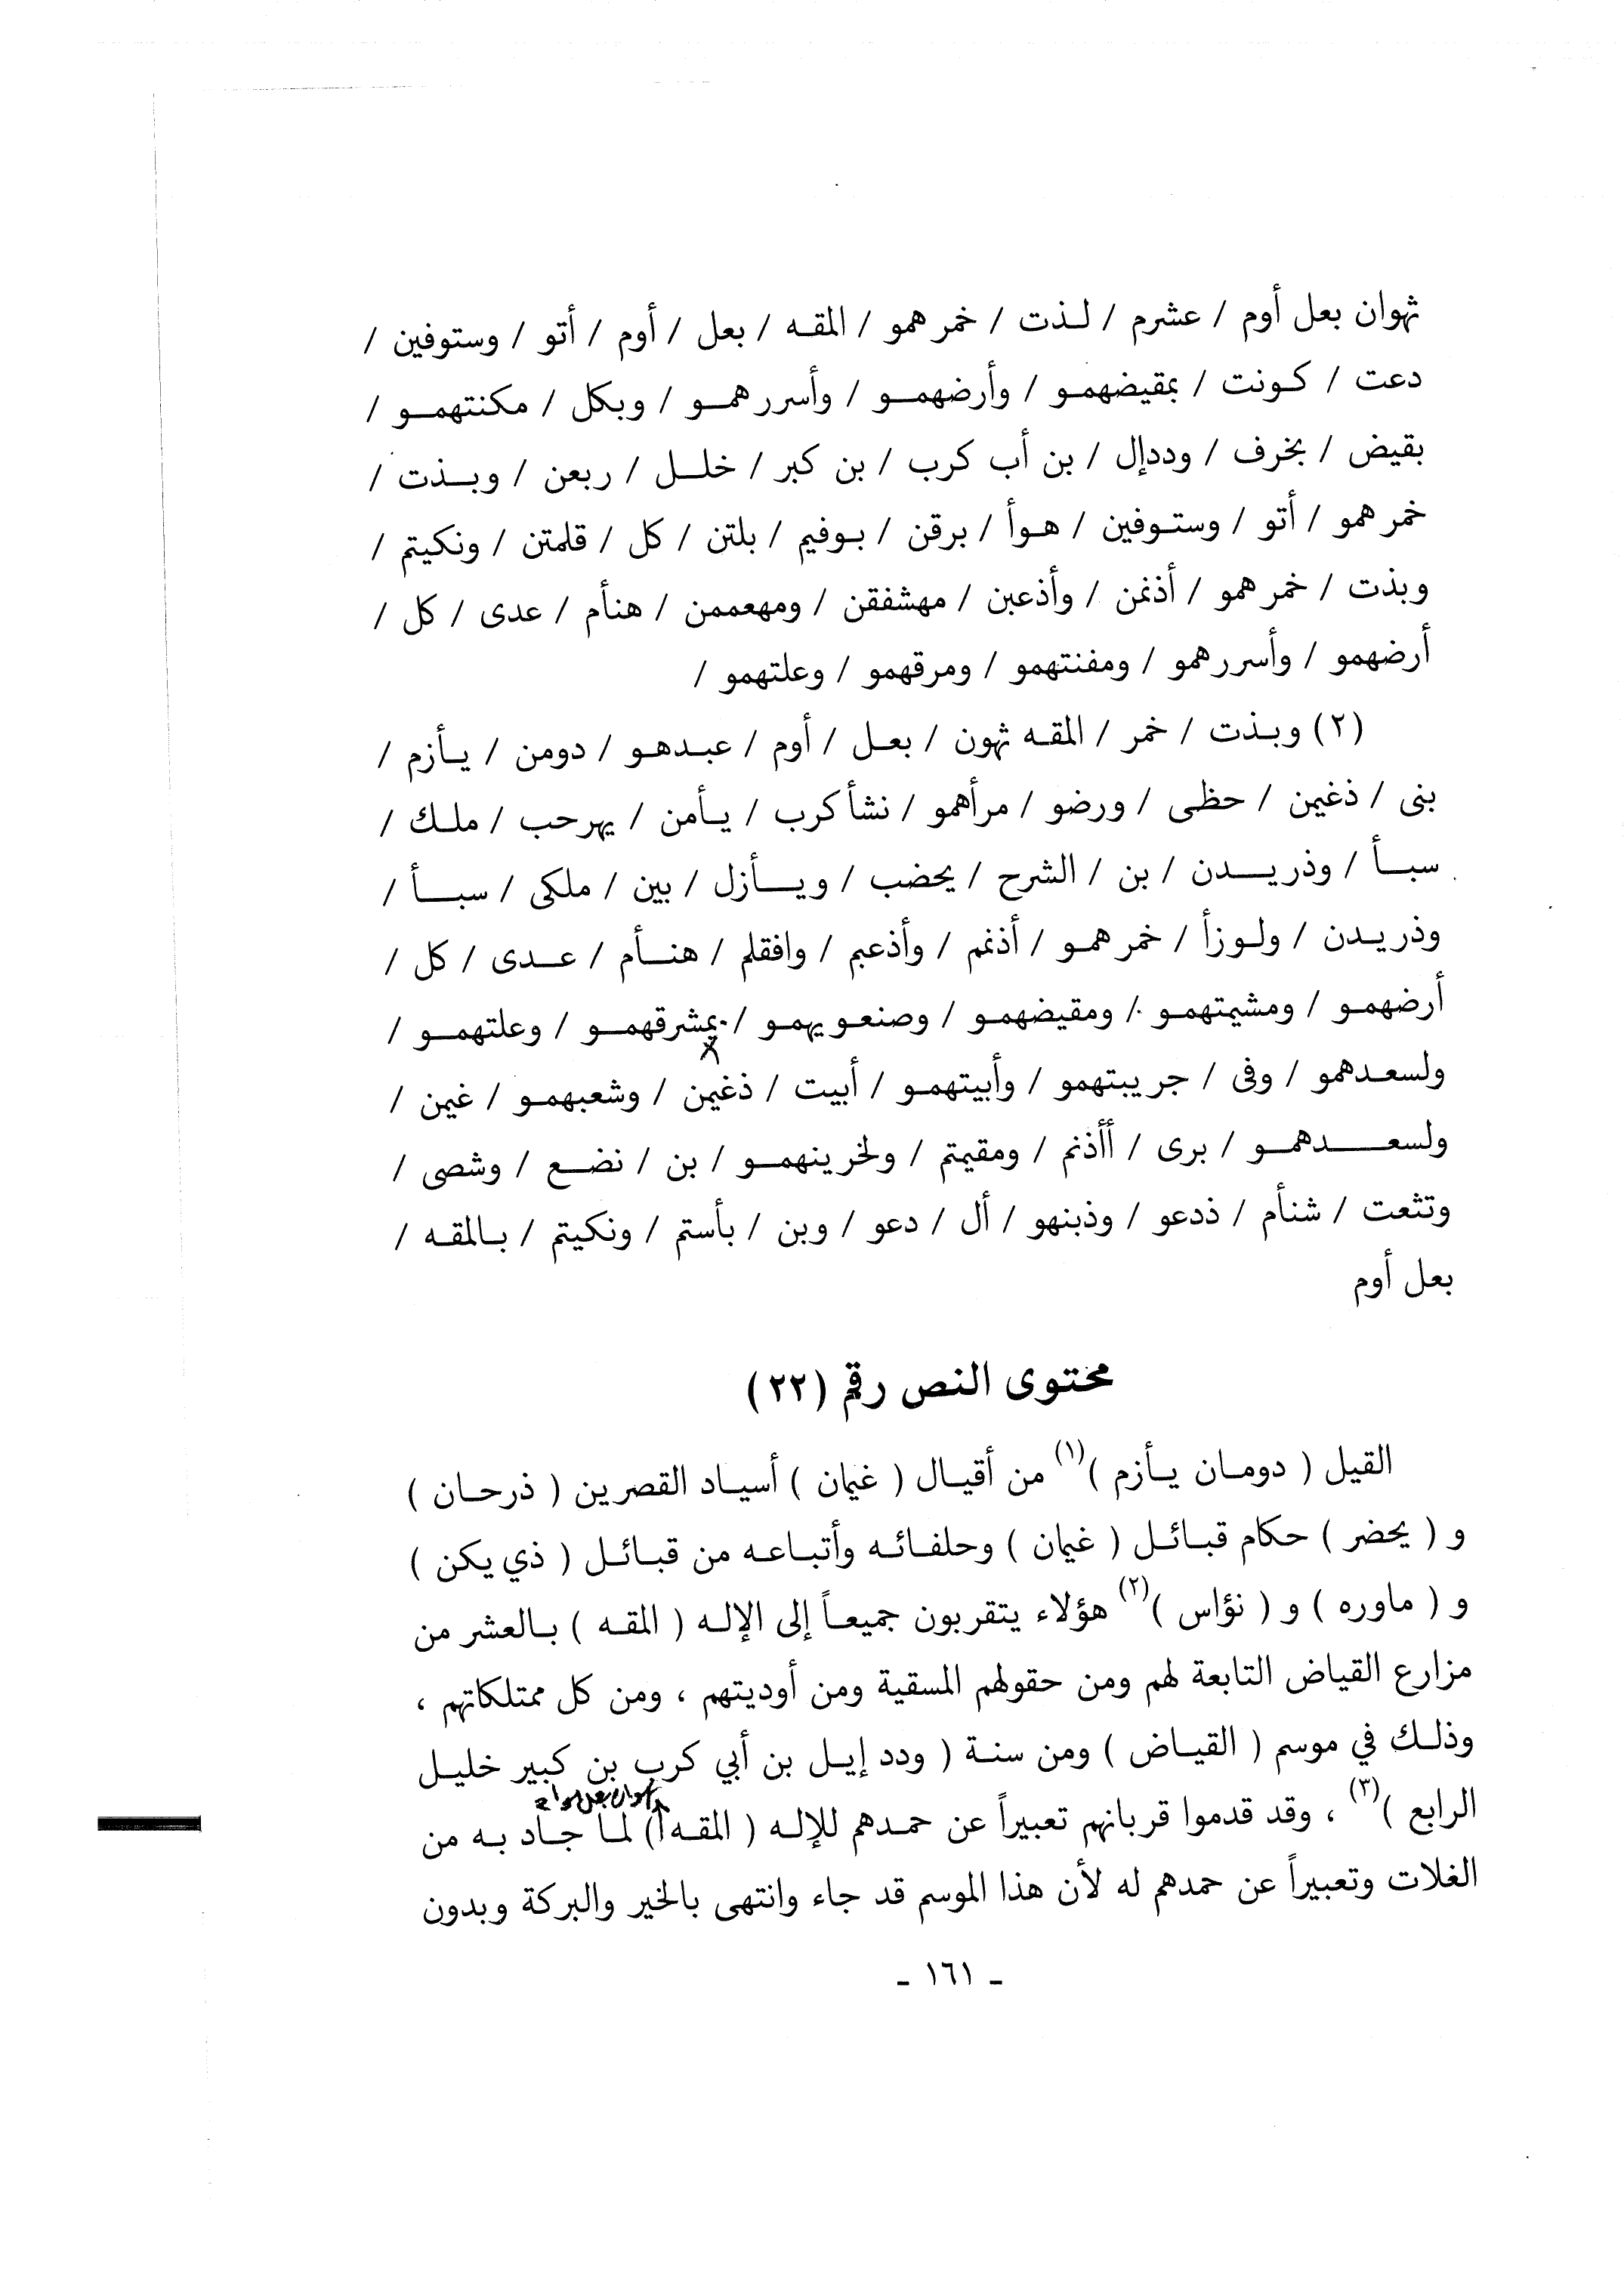 ثهوان بعل أوم / عشرم / لـذت / خمرهمو / المقـه / بعل / أوم / أتو / وستوفين /
دعت / كـونت / بمقيضهمـو / وأرضهمـــو / وأسررهمــو / وبكل / مكنتهمــو /
بقيض / بخرف / وددإل / بن أب كرب / بن كبر / خلــل / ربعن / وبــذت /
خمرهمو / أتو / وستـوفين / هـوأ / برقن / بـوفيم / بلتن / كل / قلمتن / ونكيتم /
وبذت / خمرهمو / أذنمن / وأذعبن / مهشفقن / ومهعممن / هنأم / عدى / كل /
أرضهمو / وأسررهمو / ومفنتهمو / ومرقهمو / وعلتهمو /
(٢) وبـذت / خمر / المقـه ثهون / بعـل / أوم / عبـدهـو / دومن / يـأزم /
بنى / ذغيمن / حظى / ورضو / مرأهمو / نشأكرب / يـأمن / يهرحب / ملـك /
سبــأ / وذريــــدن / بن / الشرح / يحضب / ويــــأزل / بين / ملكى / سبـــأ /
وذريـدن / ولـوزأ / خمرهمـو / أذنم / وأذعبم / وافقلم / هنــأم / عــدى / كل /
أرضهمـو / ومشيمتهمـو / ومقيضهمـو / وصنعـويهمـو / بمشرقهمــو / وعلتهمــو /
ولسعـدهمو / وفى / جريبتهمو / وأبيتهمـو / أبيت / ذغيمن / وشعبهمـو / غيمن /
ولسعـــــدهمــو / برى / أأذنم / ومقيمتم / ولخرينهمــو / بن / نضــع / وشصى /
وتثعت / شنأم / ذدعو / وذبنهو / أل / دعو / وبن / بأستم / ونكيتم / بـالمقـه /
بعل أوم
محتوى النص رقم (٢٢)
القيل ( دومـان يـأزم )(١) من أقيـال ( غيمان ) أسيـاد القصرين ( ذرحـان )
و ( يحضر ) حكام قبـائـل ( غيمان ) وحلفـائـه وأتبـاعـه من قبـائـل ( ذي يكن )
و ( ماوره ) و ( نؤاس )(٢) هؤلاء يتقربون جميعـاً إلى الإلـه ( المقـه ) بـالعشر من
مزارع القياض التابعة لهم ومن حقولهم المسقية ومن أوديتهم ، ومن كل ممتلكاتهم ،
وذلـك في موسم ( القيـاض ) ومن سنـة ( ودد إيـل بن أبي كرب بن كبير خليـل
الرابع )(٣) ، وقد قدموا قربانهم تعبيراً عن حمـدهم للإلـه ( المقـه ) لمـا جـاد بـه من
الغلات وتعبيراً عن حمدهم له لأن هذا الموسم قد جاء وانتهى بالخير والبركة وبدون
- ١٦١ -